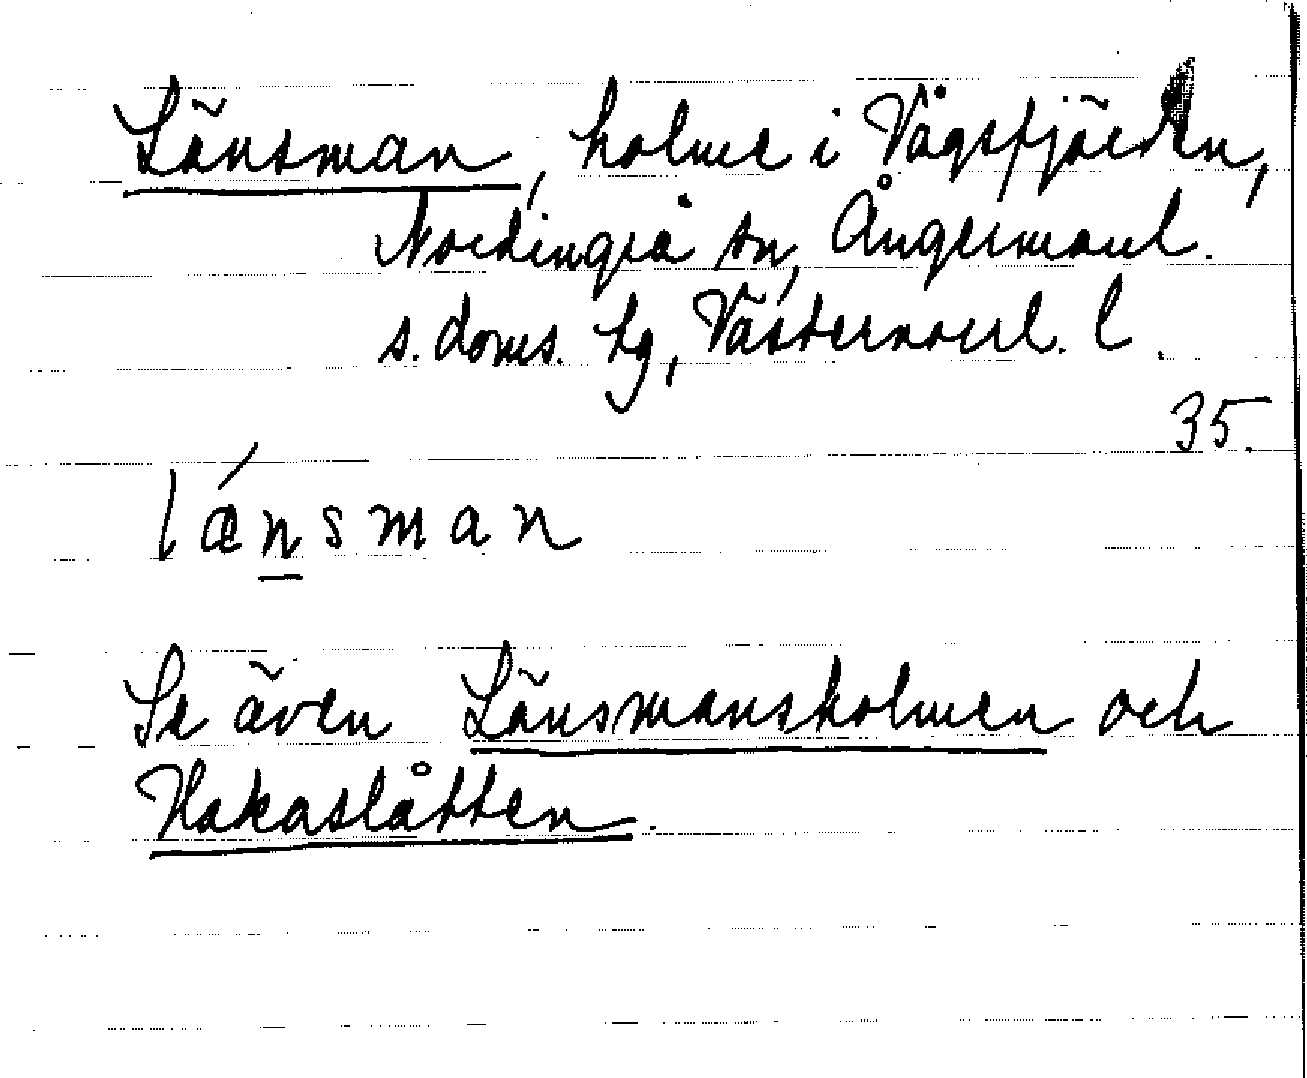 Länsman, holme i Vågsfjärden,
Nordingrå sn, Ångermanl.
s. doms. hg, Västernorrl. l.
35.
lǽnsman
Se även Länsmansholmen och
Hakaslåtten.